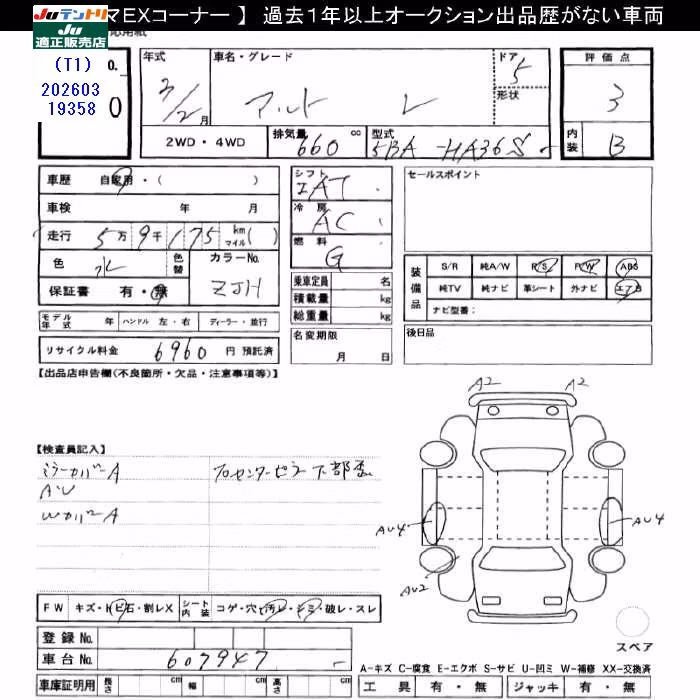 マEXコーナー 】 過去1年以上オークション出品歴がない車両
Juテントリ
Ju
適正販売店
(T1) 0.
202603
19358 0
年式 車名・グレード ドア
3/2月 アルト L 5
形状
2WD・4WD 排気量 660 cc 型式 5BA-HA36S
評価点
3
内装 B
車歴 自家用・( )
車検 年 月
走行 5万9千175 km マイル( )
色 水 色替 カラーNo. ZJH
保証書 有・無
シフト IAT
冷房 AC
燃料 G
乗車定員 名
積載量 kg
総重量 kg
セールスポイント
装備品 S/R 純A/W P/S P/W ABS
純TV 純ナビ 革シート 外ナビ エアB
ナビ型番:
モデル年式 年 ハンドル 左・右 ディーラー・並行
リサイクル料金 6960 円 預託済
名変期限
月 日
後日品
【出品店申告欄(不良箇所・欠品・注意事項等)】
A2 A2
【検査員記入】
ミラーカバーA
AU
WカバーA
センターピラー下部
AU4 AU4
AU2
FW キズ・トビ石・割レX シート内装 コゲ・穴・汚レ・シミ・破レ・スレ
登録 No.
車台 No. 607947
スペア
A-キズ C-腐食 E-エクボ S-サビ U-凹ミ W-補修 XX-交換済
車庫証明用 長さ cm 幅 cm 高さ cm 工具 有・無 ジャッキ 有・無